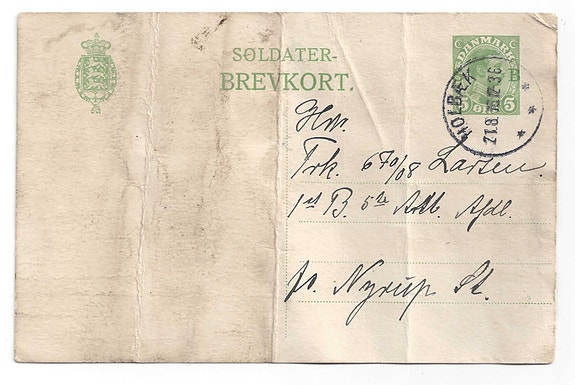 SOLDATER-
BREVKORT.
DANMARK
5 5
HOLBÆK
Hr.
Trk. 670/08 Larsen.
1st B. 5te Artl. Afdl.
pr. Nyrup St.